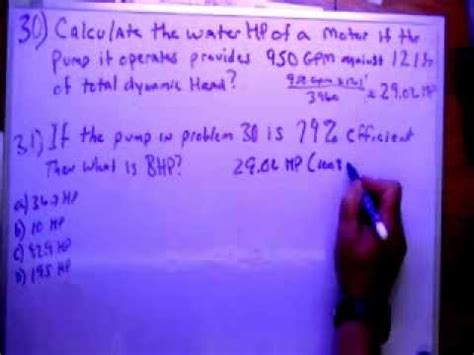 30) Calculate the water HP of a Motor if the
Pump it operates provides 950 GPM against 121
of total dynamic Head?
3960 = 29.02 HP
31) If the pump in problem 30 is 79% Efficient
Then what is BHP? 29.02 HP
a) 36.7 HP
b) 10 HP
c) 829 HP
d) 195 HP